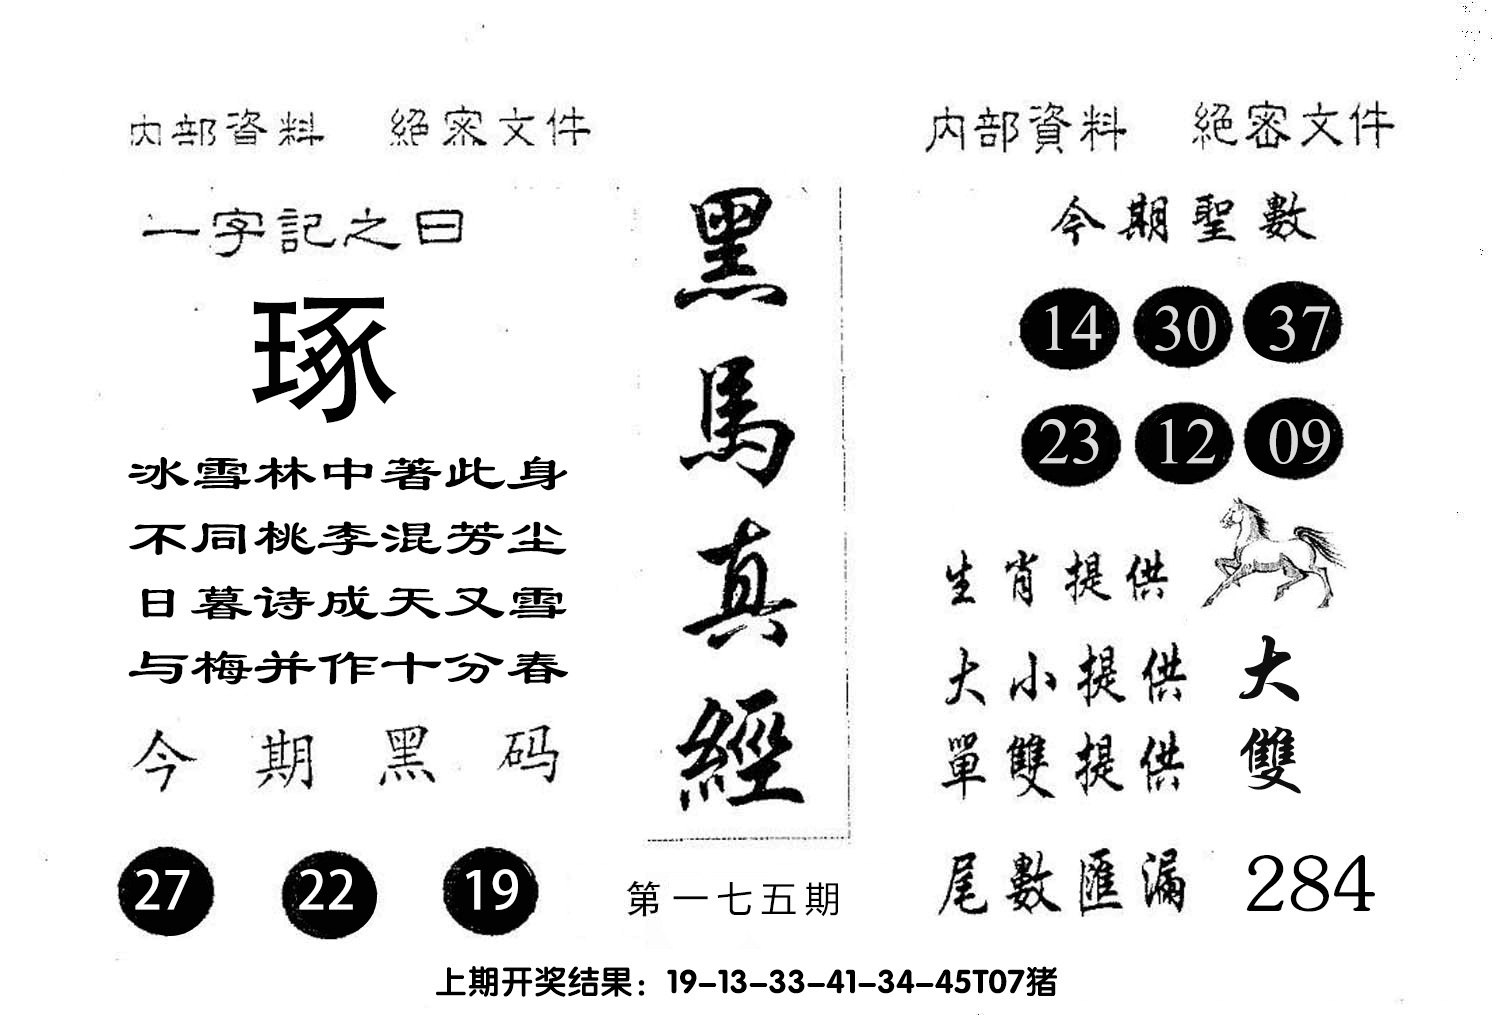 内部資料 絕密文件
一字記之曰
琢
冰雪林中著此身
不同桃李混芳尘
日暮诗成天又雪
与梅并作十分春
今期黑码
27 22 19
黑馬真經
第一七五期
内部資料 絕密文件
今期聖數
14 30 37
23 12 09
生肖提供
大小提供 大
單雙提供 雙
尾數匯漏 284
上期开奖结果：19-13-33-41-34-45T07猪